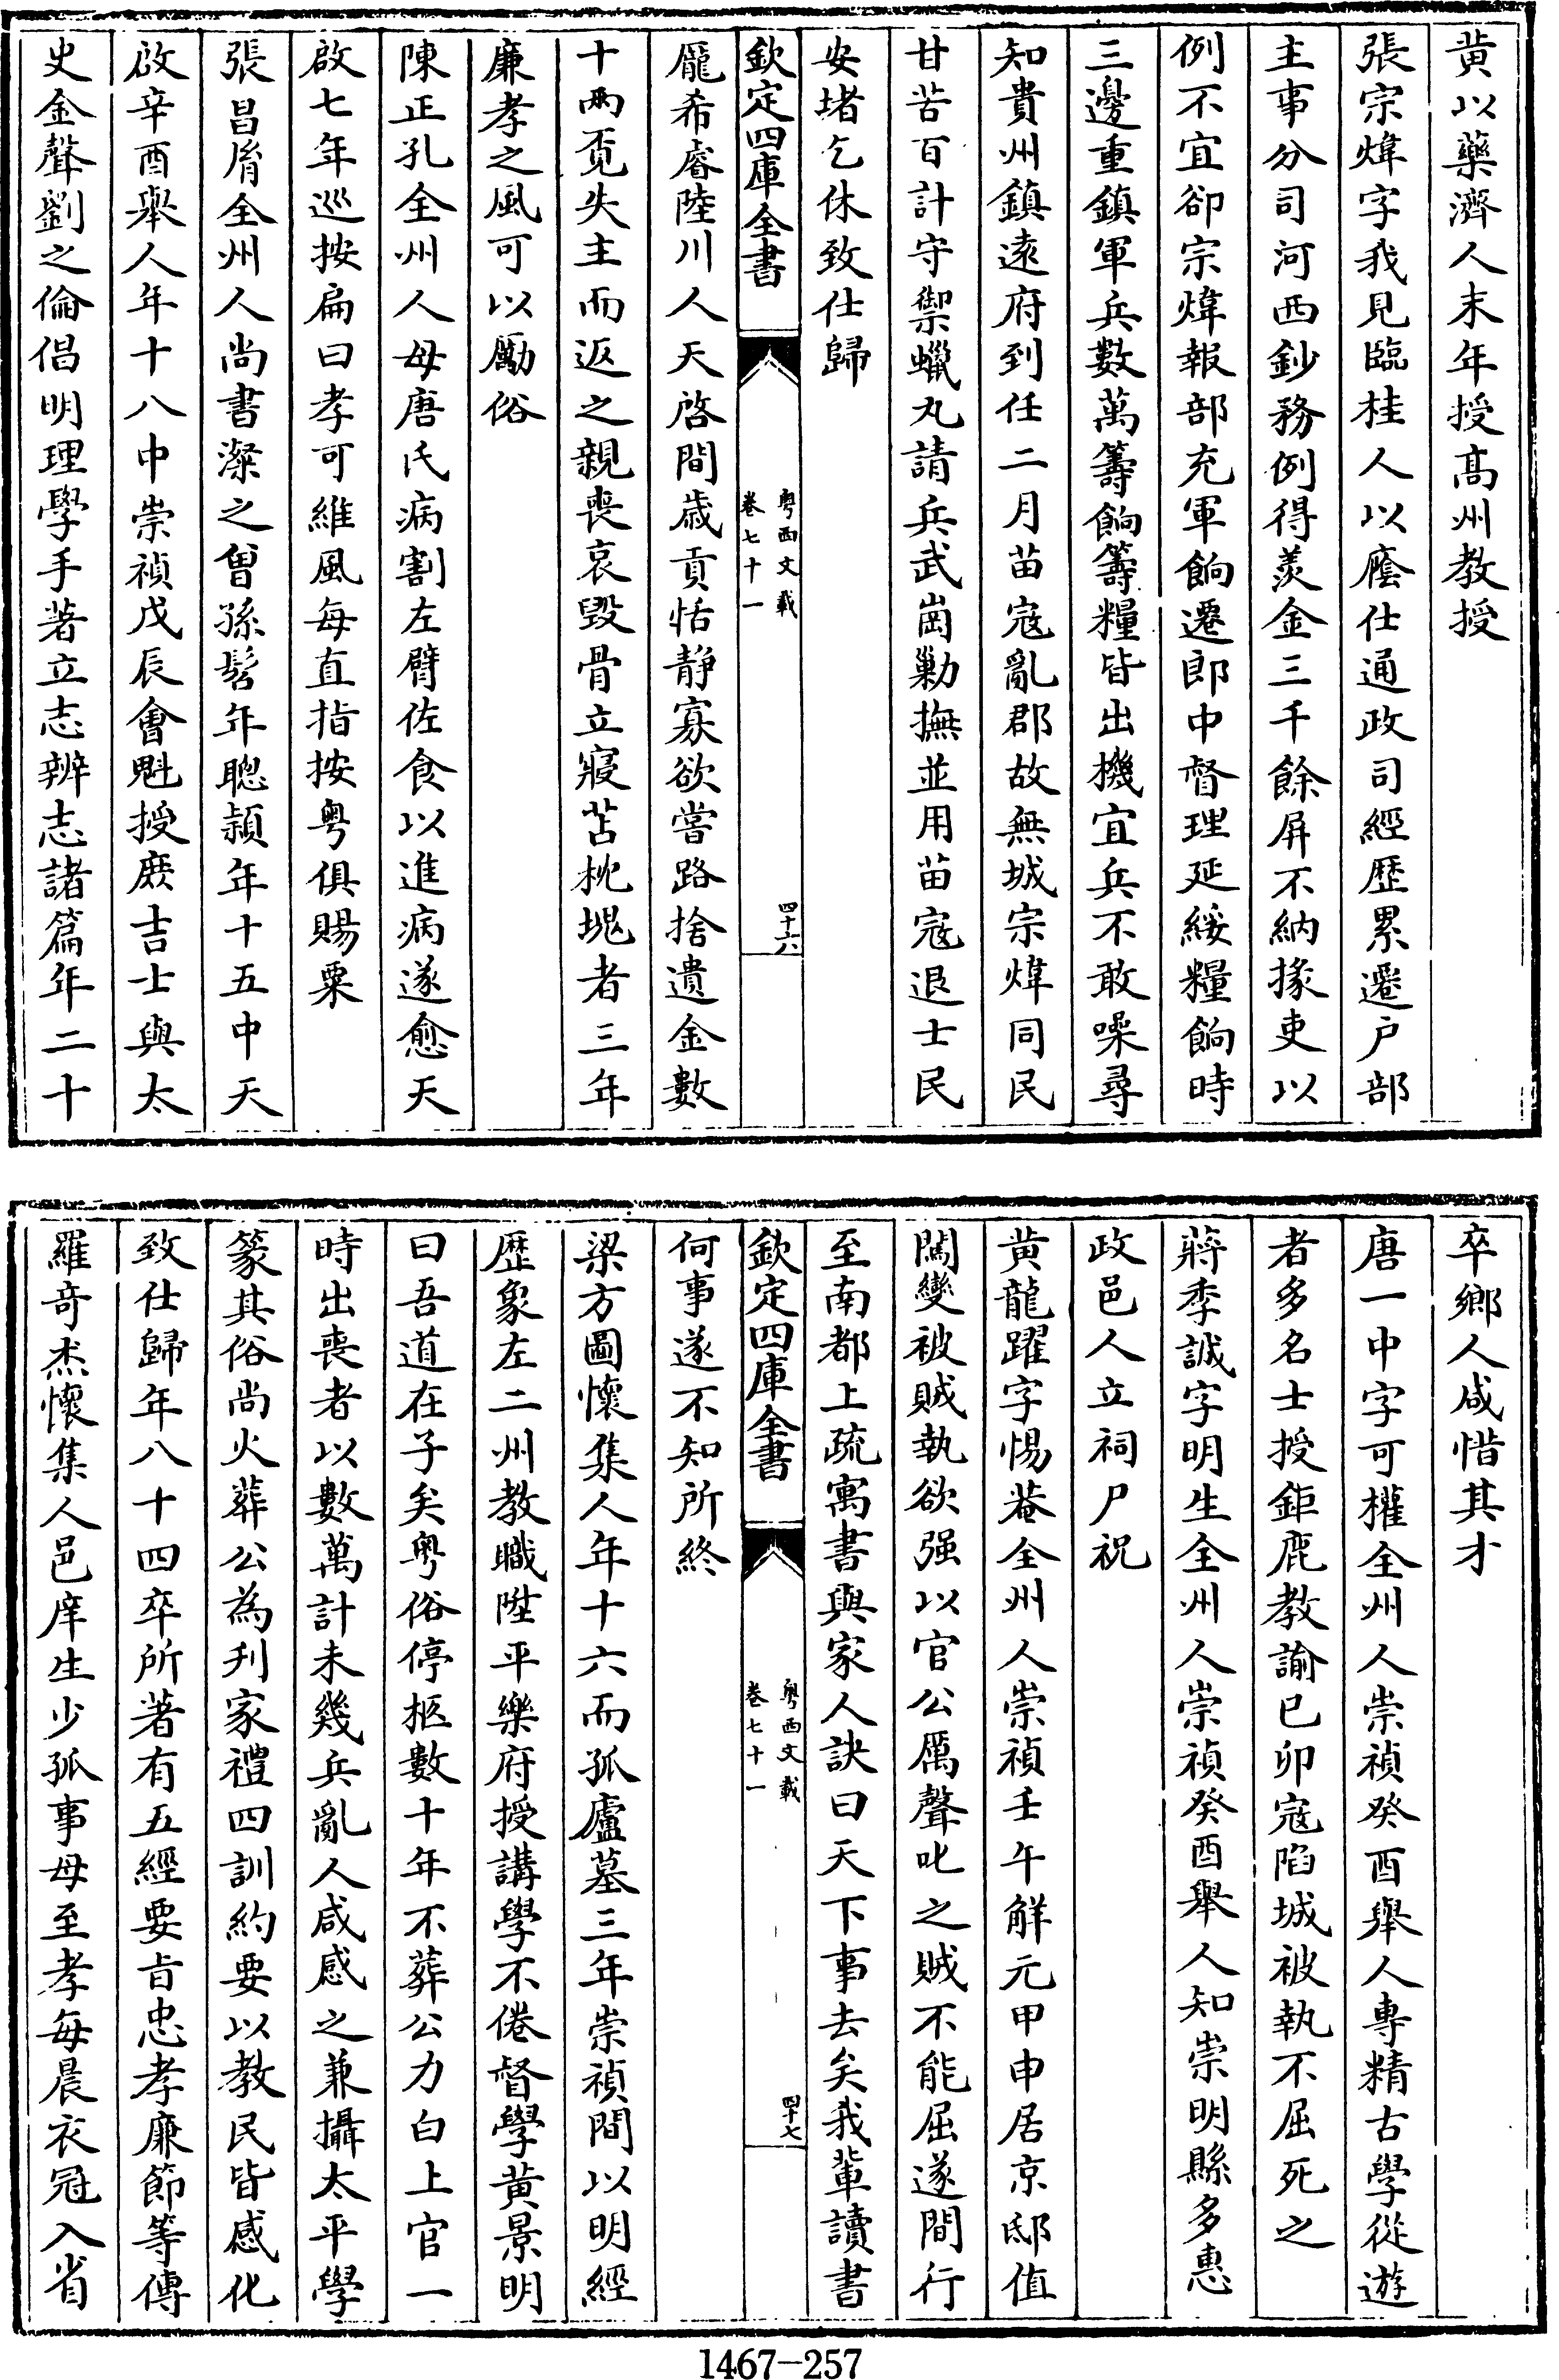 黄以藥濟人末年授髙州教授
張宗煒字我見臨桂人以廕仕通政司經歴累遷户部
主事分司河西鈔務例得羨金三千餘屏不納掾吏以
例不宜卻宗煒報部充軍餉遷郎中督理延綏糧餉時
三邊重鎮軍兵數萬籌餉籌糧皆出機宜兵不敢噪尋
知貴州鎮逺府到任二月苗寇亂郡故無城宗煒同民
甘苦百計守禦蠟丸請兵武崗勦撫並用苗寇退士民
安堵乞休致仕歸
欽定四庫全書
粤西文載
卷七十一
四十六
龎希睿陸川人天啓間歳貢恬静寡欲嘗路捨遺金數
十兩覔失主而返之親喪哀毁骨立寢苫枕塊者三年
廉孝之風可以勵俗
陳正孔全州人母唐氏病割左臂佐食以進病遂愈天
啟七年巡按扁曰孝可維風每直指按粤俱賜粟
張昌胤全州人尚書澯之曽孫髫年聰頴年十五中天
啟辛酉舉人年十八中崇禎戊辰會魁授庶吉士與太
史金聲劉之倫倡明理學手著立志辨志諸篇年二十
卒鄉人咸惜其才
唐一中字可權全州人崇禎癸酉舉人專精古學從遊
者多名士授鉅鹿教諭已卯寇陷城被執不屈死之
蔣季誠字明生全州人崇禎癸酉舉人知崇明縣多惠
政邑人立祠尸祝
黄龍躍字惕菴全州人崇禎壬午解元甲申居京邸值
闖變被賊執欲强以官公厲聲叱之賊不能屈遂間行
至南都上疏寓書與家人訣曰天下事去矣我輩讀書
欽定四庫全書
粤西文載
卷七十一
四十七
何事遂不知所終
梁方圖懷集人年十六而孤廬墓三年崇禎間以明經
歴象左二州教職陞平樂府授講學不倦督學黄景明
曰吾道在子矣粤俗停柩數十年不葬公力白上官一
時出喪者以數萬計未幾兵亂人咸感之兼攝太平學
篆其俗尚火葬公為刋家禮四訓約要以教民皆感化
致仕歸年八十四卒所著有五經要㫖忠孝廉節等傳
羅竒杰懷集人邑庠生少孤事母至孝毎晨衣冠入省
1467-257